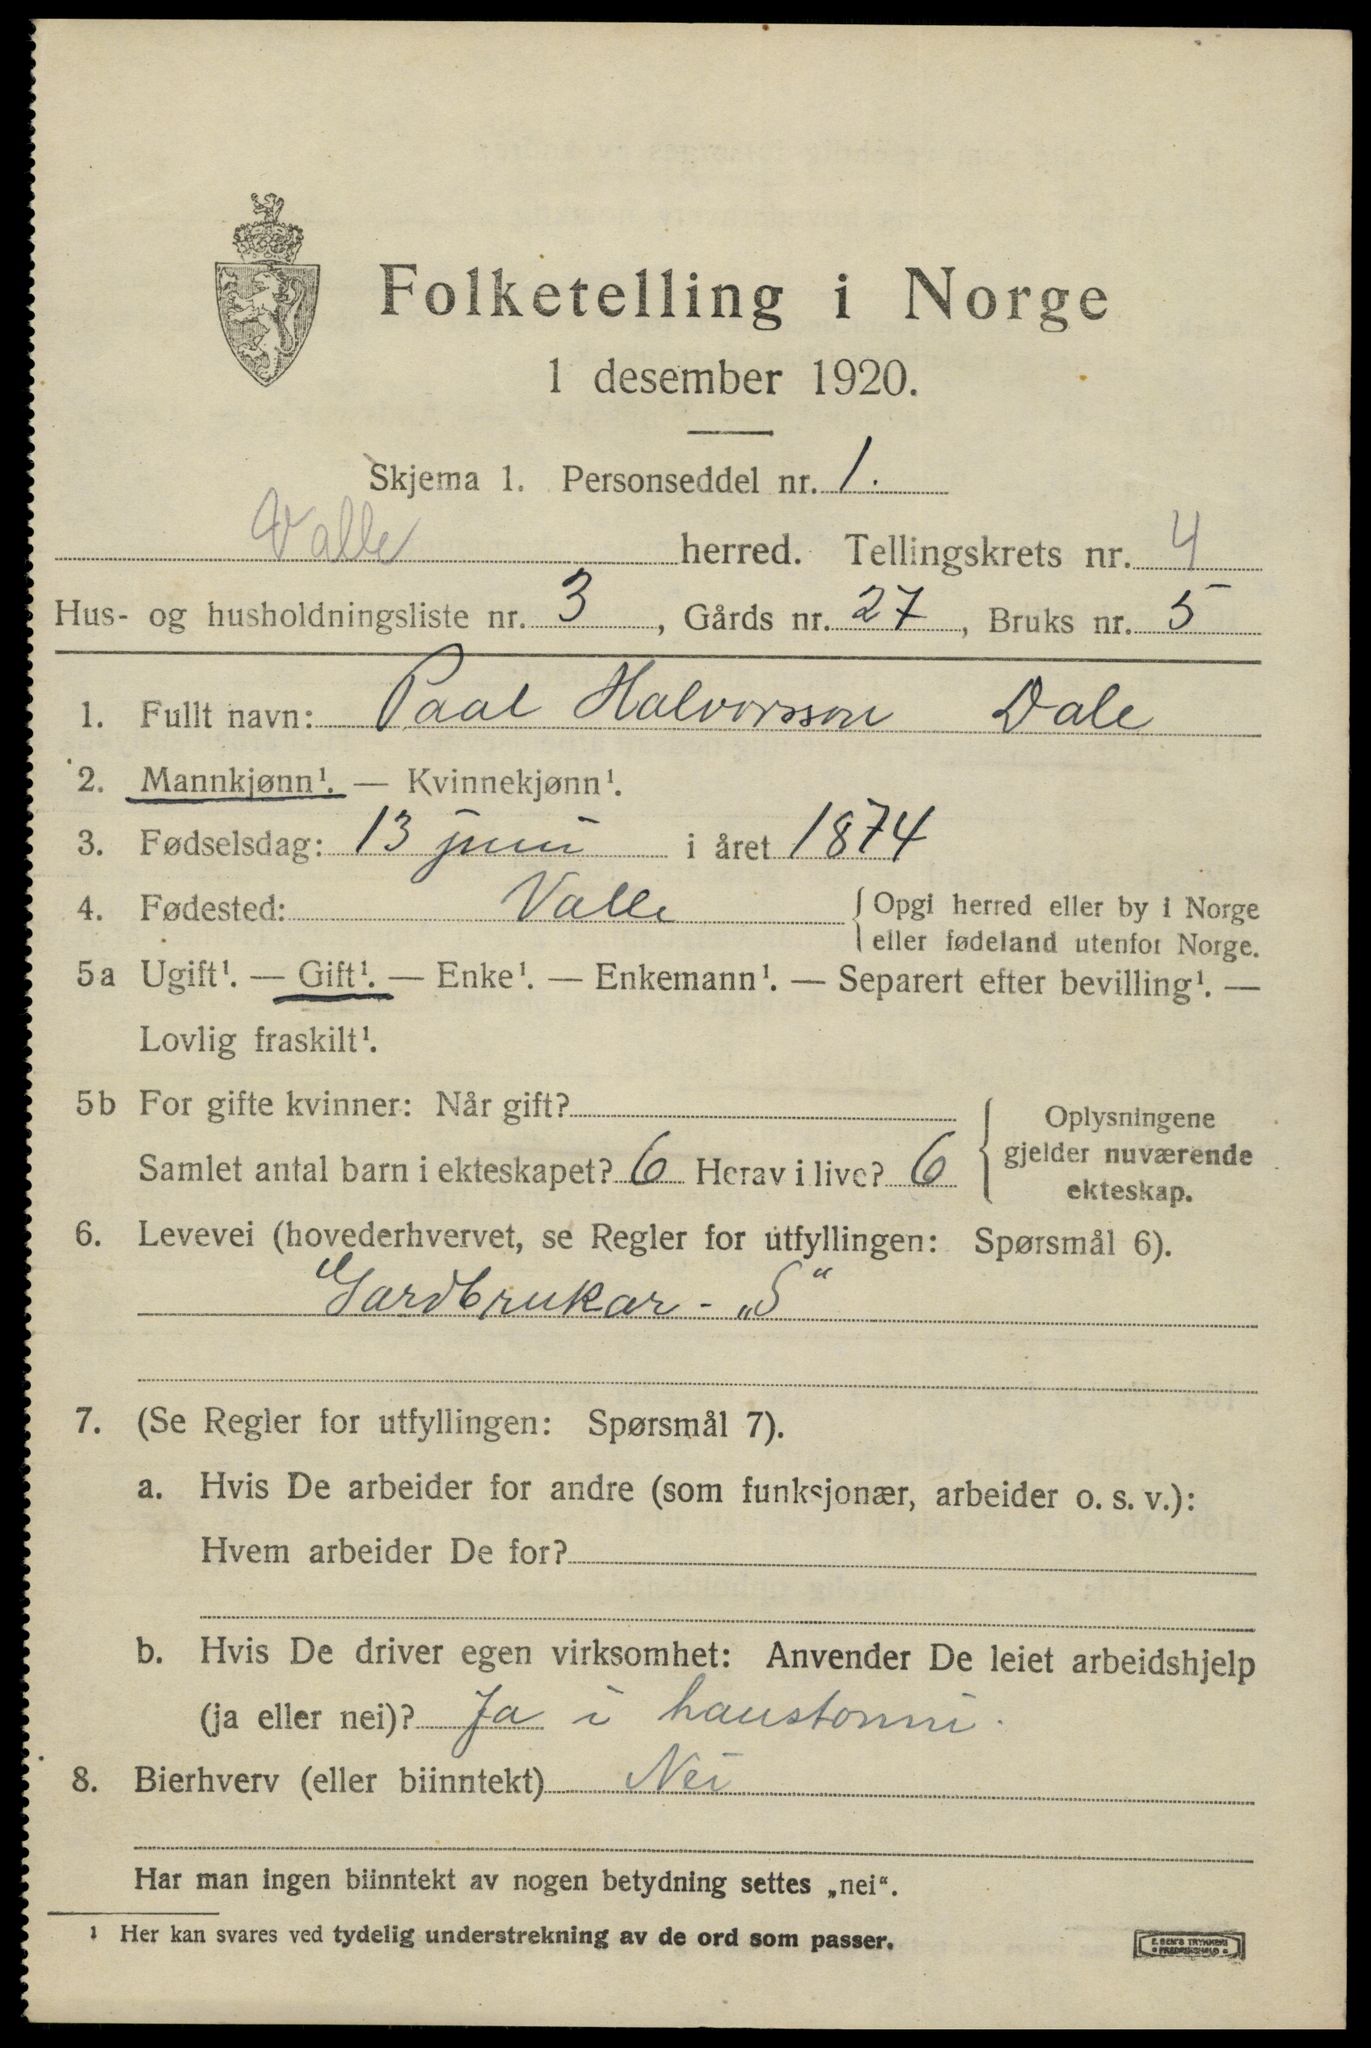 Folketelling i Norge
1 desember 1920.
Skjema 1. Personseddel nr. 1.
Valle herred. Tellingskrets nr. 4
Hus- og husholdningsliste nr. 3, Gårds nr. 27, Bruks nr. 5
1. Fullt navn: Paal Halvorsson Dale
2. Mannkjønn¹. — Kvinnekjønn¹.
3. Fødselsdag: 13 juni i året 1874
4. Fødested: Valle { Opgi herred eller by i Norge
eller fødeland utenfor Norge.
5a Ugift¹. — Gift¹. — Enke¹. — Enkemann¹. — Separert efter bevilling¹. —
Lovlig fraskilt¹.
5b For gifte kvinner: Når gift? { Oplysningene
gjelder nuværende
ekteskap.
Samlet antal barn i ekteskapet? 6 Herav i live? 6
6. Levevei (hovederhvervet, se Regler for utfyllingen: Spørsmål 6).
Gardbrukar - „S“
7. (Se Regler for utfyllingen: Spørsmål 7).
a. Hvis De arbeider for andre (som funksjonær, arbeider o. s. v.):
Hvem arbeider De for?
b. Hvis De driver egen virksomhet: Anvender De leiet arbeidshjelp
(ja eller nei)? Ja i haustonni.
8. Bierhverv (eller biinntekt) Nei
Har man ingen biinntekt av nogen betydning settes „nei“.
¹ Her kan svares ved tydelig understrekning av de ord som passer.